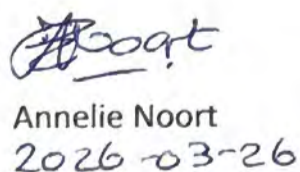 ANoort
Annelie Noort
2026-03-26